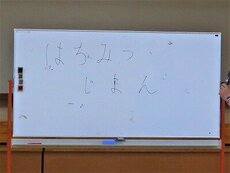 はちみつ
じまん